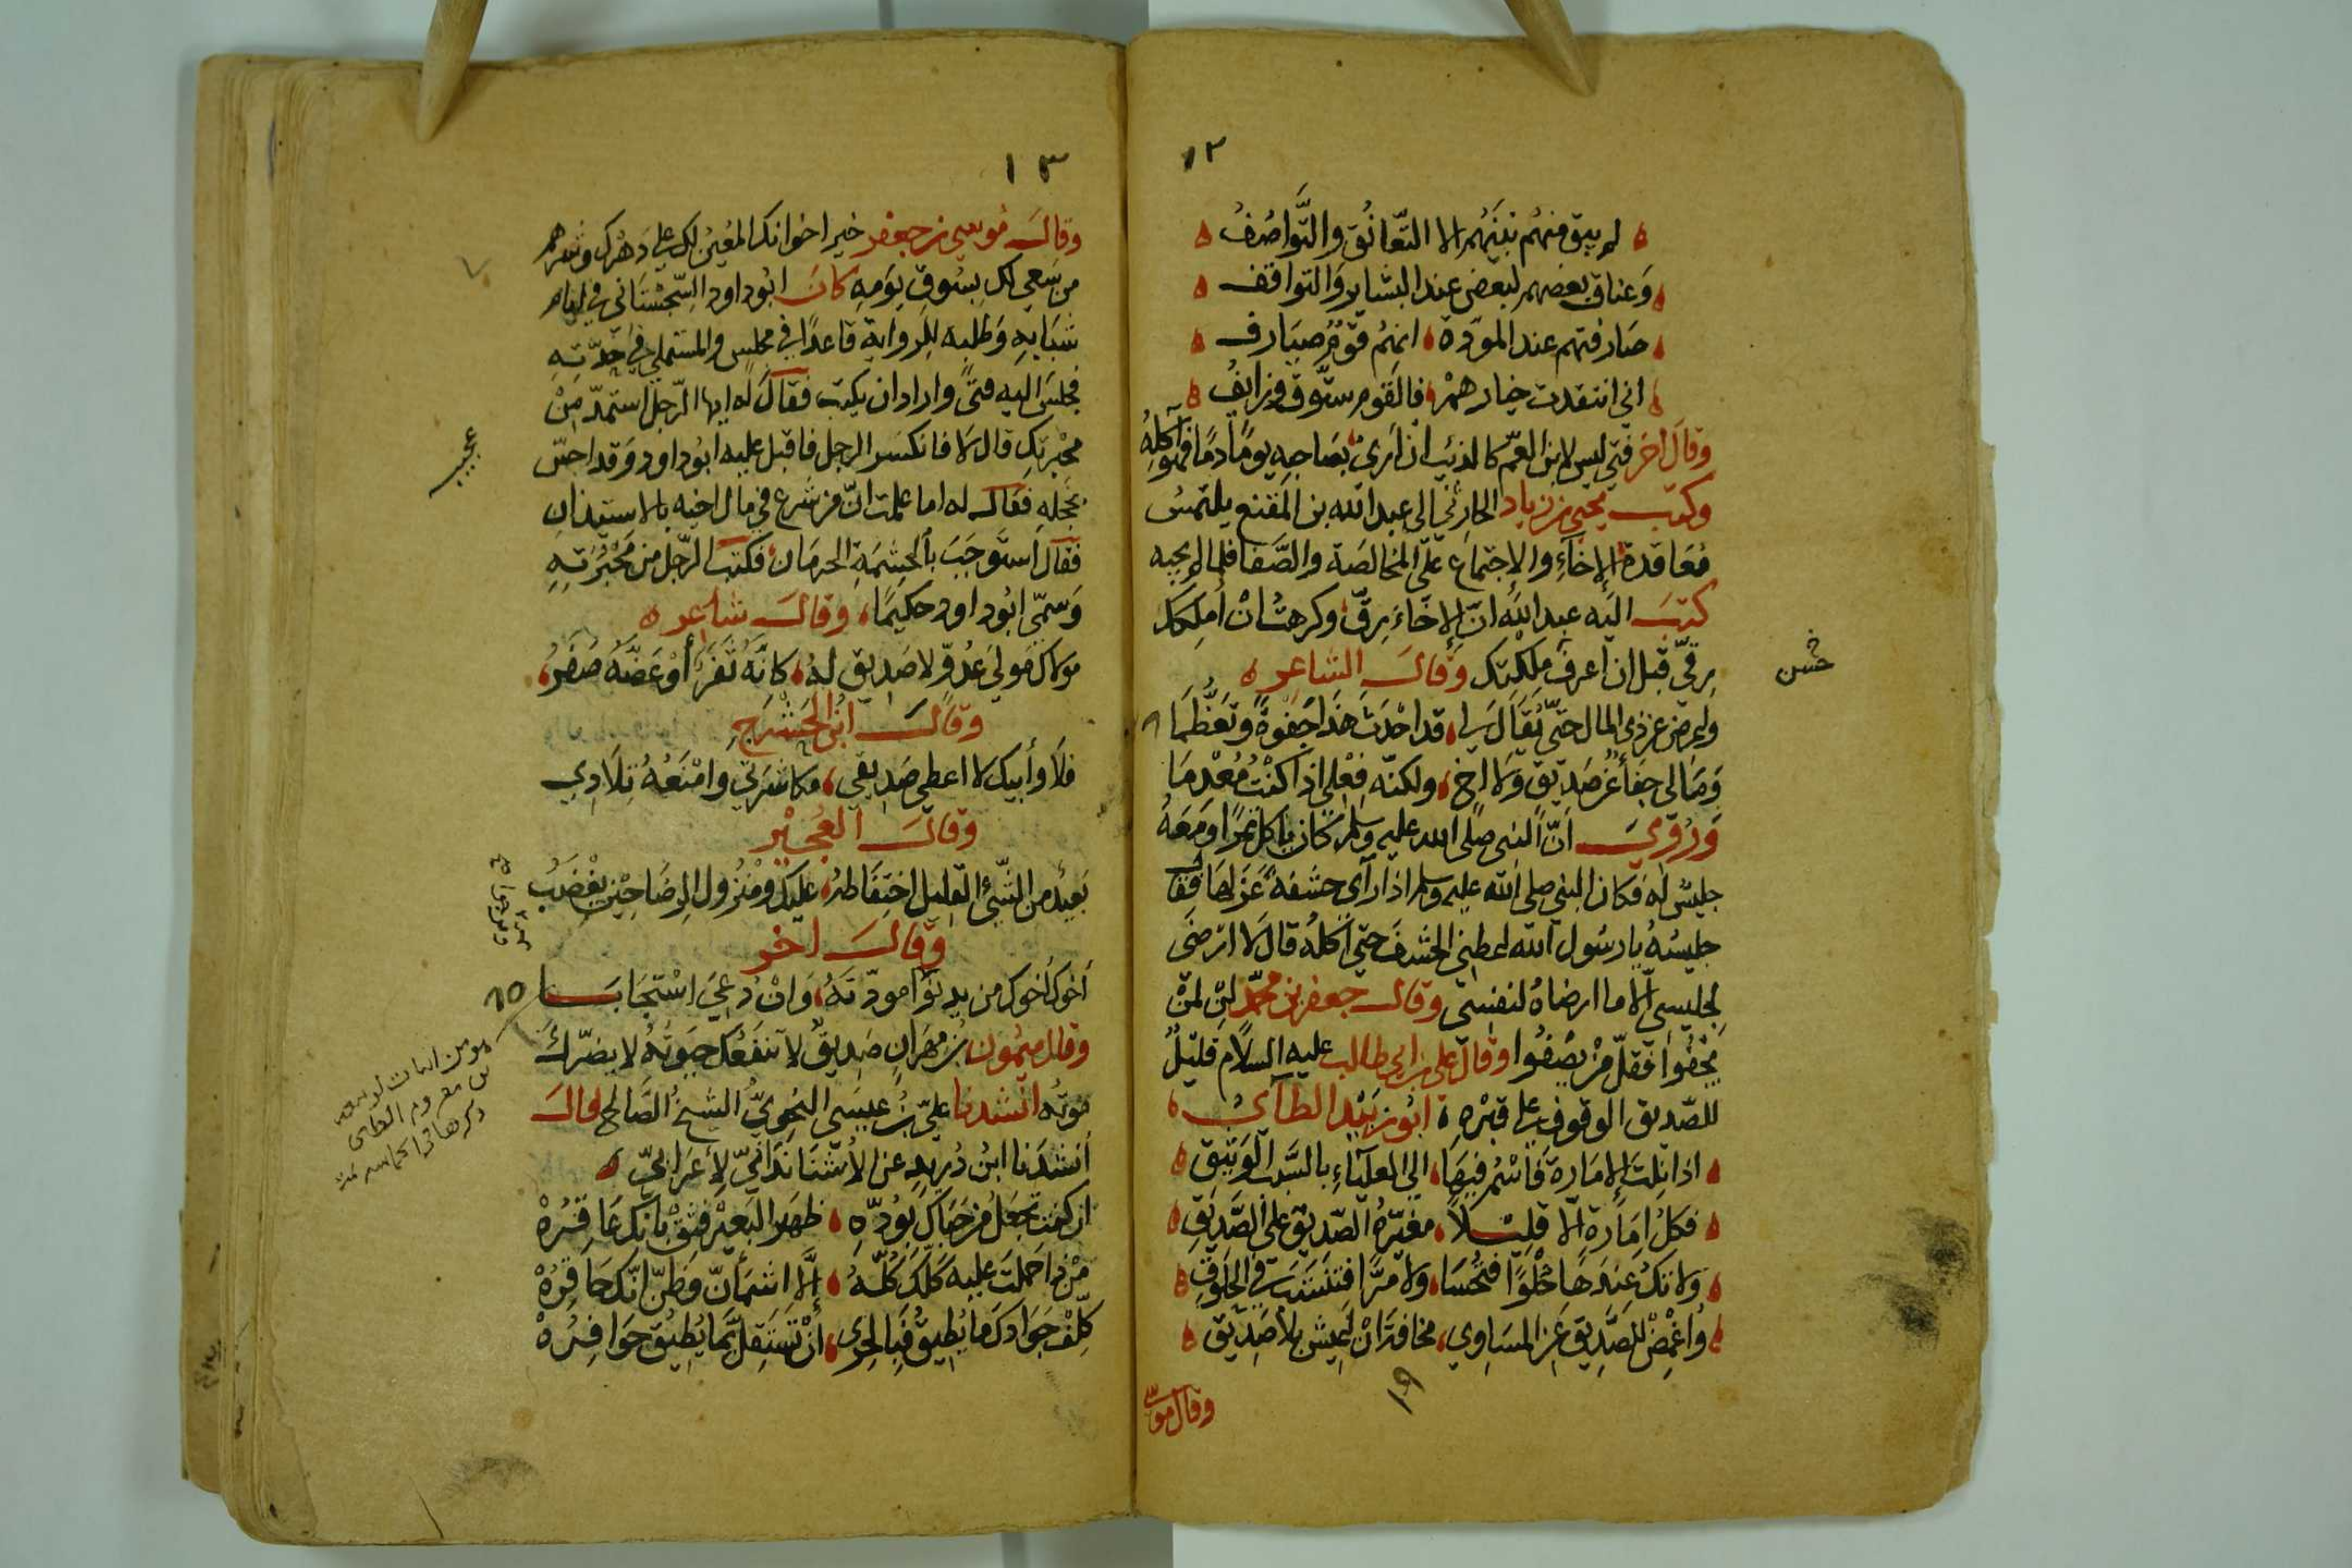 ١٢
لم يبق منهم بينهم الا التعانق والتواصف
وعناق بعضهم لبعض عند التساير والتواقف
صارفتهم عند المودة انهم قوم صيارف
اني انتقدت خيارهم فالقوم ستوق وزايف
وقال آخر فتى ليس لابن العم كالذئب ان رأى بصاحبه يوما دما فهو آكله
وكتب يحيى بن زياد الحارثي الى عبد الله بن المقفع يلتمس
معاقدة الإخاء والاجتماع على المخالصة والصفا فلما لم يجبه
كتب اليه عبد الله ان الإخاء رق وكرهت ان أملكك
رقي قبل ان اعرف ملكتك وقال الشاعر
واعرض عن ذي المال حتى يقال لي قد احدث هذا جفوة وتعظما
وما لي جفا عن صديق ولا اخ ولكنه فعلي اذا كنت معدما
وروي ان النبي صلى الله عليه وسلم كان ياكل تمرا ومعه
جليس له فكان النبي صلى الله عليه وسلم اذا رآى حشفة عزلها فقال
جليسه يا رسول الله اعطني الحشف حتى آكله قال لا ارضى
لجليسي الا ما ارضاه لنفسي وقال جعفر بن محمد لن لمن
يجفوا فقل من يصفوا وقال علي بن ابي طالب عليه السلام قليل
للصديق الوقوف على قبره ابو زبيد الطآئي
اذا نلت الامارة فاسم فيها الى العلياء بالسبب الوثيق
فكل امارة الا قليلا مغيرة الصديق على الصديق
ولا تك عندها حلوا فتحسا ولا مرا فتنشب في الحلوق
واغمض للصديق عن المساوي مخافة ان اعيش بلا صديق
وقال موسى
حسن
١٣
وقال موسى بن جعفر خير اخوانك المعين لك على دهرك وشرهم
من سعى لك بسوق يومه كان ابو داود السجستاني في ايام
شبابه وطلبه للرواية قاعدا في مجلس والمستملي في حدته
فجلس اليه فتى واراد ان يكتب فقال له ايها الرجل استمد من
محبرتك قال لا فانكسر الرجل فاقبل عليه ابو داود وقد احس
بخجله فقال له اما علمت ان من شرع في مال اخيه بالاستيذان
فقال استوجب بالحشمة الحرمان فكتب الرجل من محبرته
وسمي ابو داود حكيما وقال شاعر
مولاك مولى عدو لا صديق له كانه نفر أو عضه صفر
وقال ابن الحشرج
فلا وأبيك لا اعطي صديقي مكاشرتي وامنعه تلادي
وقال العجير
بعيد من الشيء القليل احتفاظه عليك ومنزول الرضا حين يغضب
وقال اخر
أخوك أخوك من يدنوا مودته وان دعي استجابا
وقال ميمون بن مهران صديق لا تنفعك حيوته لا يضرك
موته انشدنا علي بن عيسى النحوي الشيخ الصالح قال
أنشدنا ابن دريد عن الأشنانداني لأعرابي
ان كنت تجعل من حباك بوده ظهر البعير فثق بانك عاقره
من ذا حملت عليه كلك كله إلا اشمأن وظن انك حاقره
كلف جوادك ما يطيق فبالحرى أن تستقل بما يطيق حوافره
عجيب